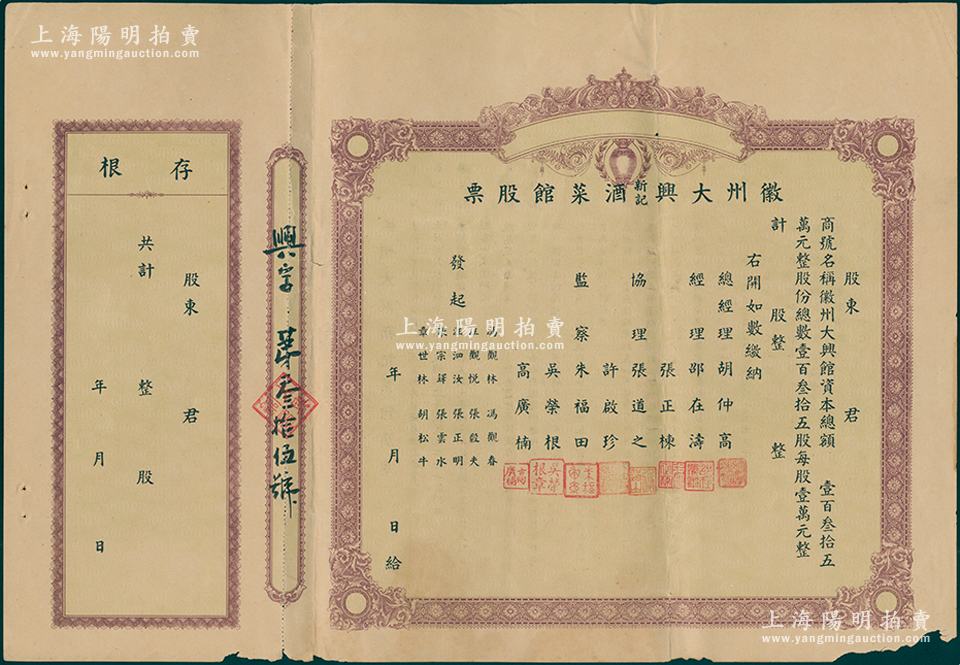 上海陽明拍賣
www.yangmingauction.com
上海陽明拍賣
www.yangmingauction.com
徽州大興新記酒菜館股票
股東 君
商號名稱徽州大興館資本總額 壹百叁拾五
萬元整股份總數壹百叁拾五股每股壹萬元整
計 股整 整
右開如數繳納
總經理胡仲高
經理邵在濤
張正棟
協理張道之
許啟珍
監察朱福田
吳榮根
高廣楠
發起
馮觀林 馮觀春
汪觀悅 張毅夫
泗汝 張正明
張宗鐸 張雲水
章世林 胡松牛
年 月 日給
吳榮
根章
興字第叁拾伍號
存根
股東 君
共計 整股
年 月 日
上海陽明拍賣
www.yangmingauction.com
上海陽明拍賣
www.yangmingauction.com